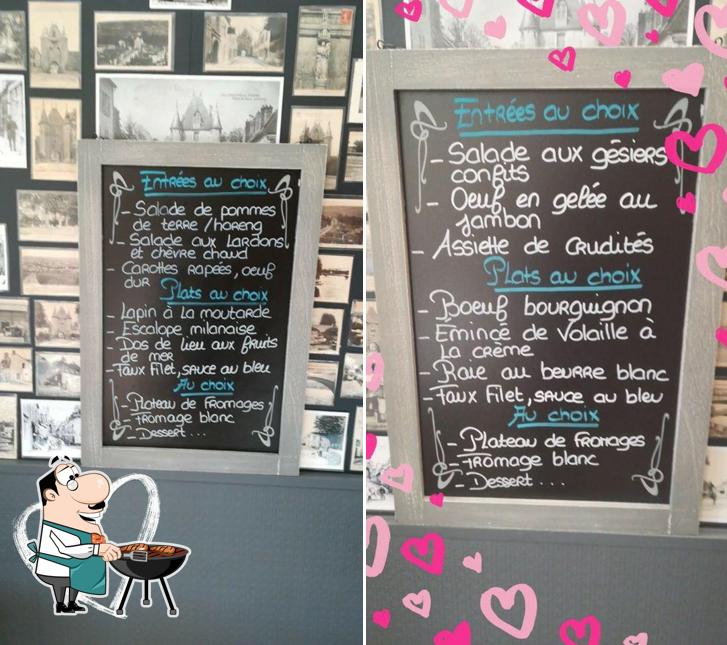 Entrées au choix
- Salade de pommes
de terre / hareng
- Salade aux Lardons
et chèvre chaud
- Carottes rapées, oeuf
dur
Plats au choix
- Lapin à La moutarde
- Escalope milanaise
- Dos de lieu aux fruits
de mer
- Faux Filet, sauce au bleu
Au choix
- Plateau de fromages
- Fromage blanc
- Dessert ...
Entrées au choix
- Salade aux gésiers
confits
- Oeuf en gelée au
jambon
- Assiette de crudités
Plats au choix
- Boeuf bourguignon
- Emincé de Volaille à
La crème
- Raie au beurre blanc
- Faux Filet, sauce au bleu
Au choix
- Plateau de fromages
- Fromage blanc
- Dessert ...